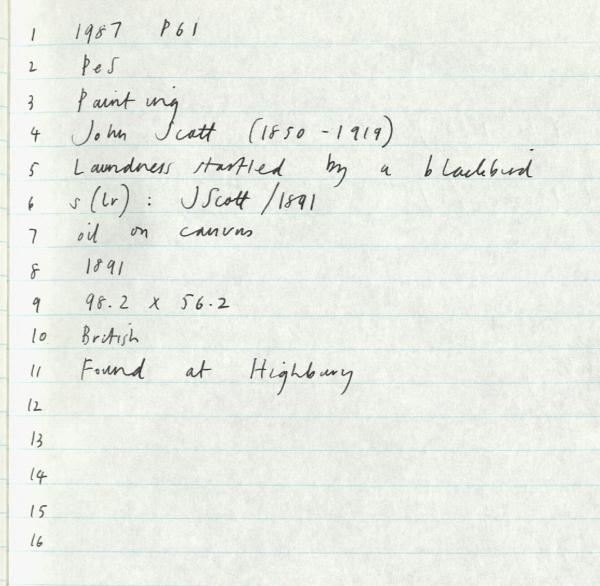 1 1987 P61
2 PeS
3 Painting
4 John Scott (1850-1919)
5 Laundress startled by a blackbird
6 s(lr): JScott/1891
7 oil on canvas
8 1891
9 98.2 x 56.2
10 British
11 Found at Highbury
12
13
14
15
16